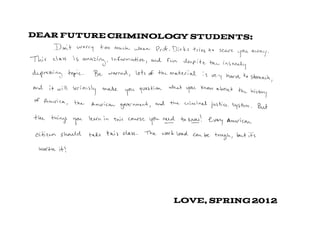 DEAR FUTURE CRIMINOLOGY STUDENTS:
Don't worry too much when Prof. Dirks tries to scare you away.
This class is amazing, informative, and fun despite the insanely
depressing topic. Be warned, lots of the material is very hard to stomach,
and it will seriously made you question what you know about the history
of America, the American government, and the criminal justice system. But
the things you learn in this course you need to know! Every American
citizen should take this class. The work load can be tough, but it's
worth it!
LOVE, SPRING 2012